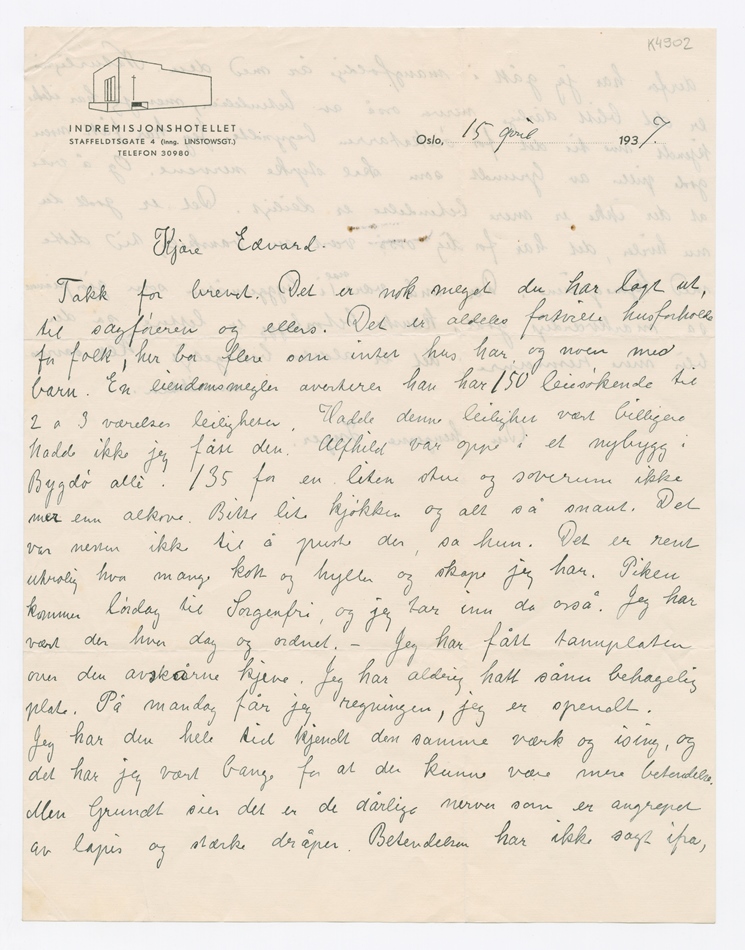 K4902
INDREMISJONSHOTELLET
STAFFELDTSGATE 4 (Inng. LINSTOWSGT.)
TELEFON 30980
Oslo, 15 april 1937.
Kjære Edvard.
Takk for brevet. Det er nok meget du har lagt ut,
til sagføreren og ellers. Det er aldeles fortvilete husforholde
for folk, her bor flere som intet hus har, og noen med
barn. En eiendomsmegler averterer han har 150 leiesøkende til
2 a 3 værelses leiligheter. Hadde denne leilighet vært billigere
hadde ikke jeg fått den. Alfhild var oppe i et nybygg i
Bygdø allè. 135 for en liten stue og soverum ikke
mer enn alkove. Bitte lite kjøkken og alt så snaut. Det
var nesten ikke til å puste der, sa hun. Det er rent
utrolig hva mange kott og hyller og skape jeg har. Piken
kommer lørdag til Sorgenfri, og jeg tar inn da også. Jeg har
vært der hver dag og ordnet. – Jeg har fått tannplaten
over den avskårne kjeve. Jeg har aldrig hatt sånn behagelig
plate. På mandag får jeg regningen, jeg er spendt.
Jeg har den hele tid kjendt den samme værk og ising, og
det har jeg vært bange for at der kunne være mere betendelse.
Men Grundt sier det er de dårlige nerver som er angrepet
av lapis og stærke dråper. Betendelsen har ikke sagt ifra,